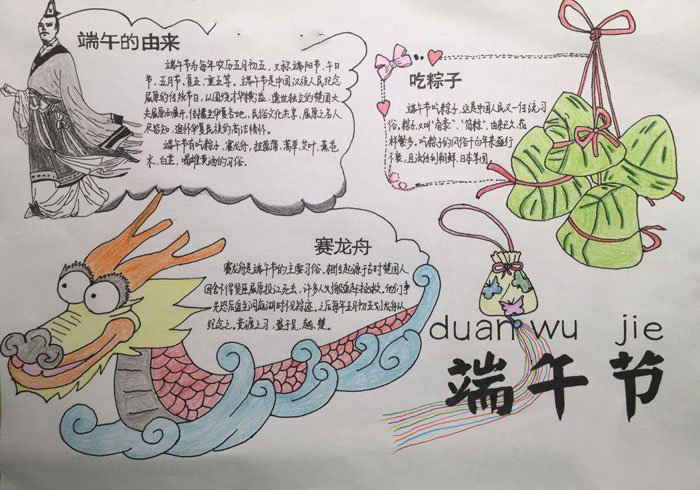 端午的由来
端午节为每年农历五月初五,又称端阳节,午日
节,五月节,夏五,重五等。端午节是中国汉族人民纪念
屈原的传统节日,以围绕才华横溢,遗世独立的楚国大
夫屈原而展开,传播至华夏各地,民俗文化共享,屈原之名人
尽皆知,追怀华夏民族的高洁情怀。
端午节有吃粽子,赛龙舟,挂菖蒲,蒿草,艾叶,薰苍
术,白芷,喝雄黄酒的习俗。
吃粽子
端午节吃粽子,这是中国人民又一传统习
俗,粽子,又叫"角黍","筒粽",由来已久,花
样繁多。吃粽子的风俗千百年来盛行
不衰,且流传到朝鲜,日本等国。
赛龙舟
赛龙舟是端午节的主要习俗,相传起源于古时楚国人
因舍不得贤臣屈原投江死去,许多人划船追赶拯救。他们争
先恐后追至洞庭湖时不见踪迹,之后每年五月初五划龙舟以
纪念之。竞渡之习,盛于吴,越,楚。
duan wu jie
端午节